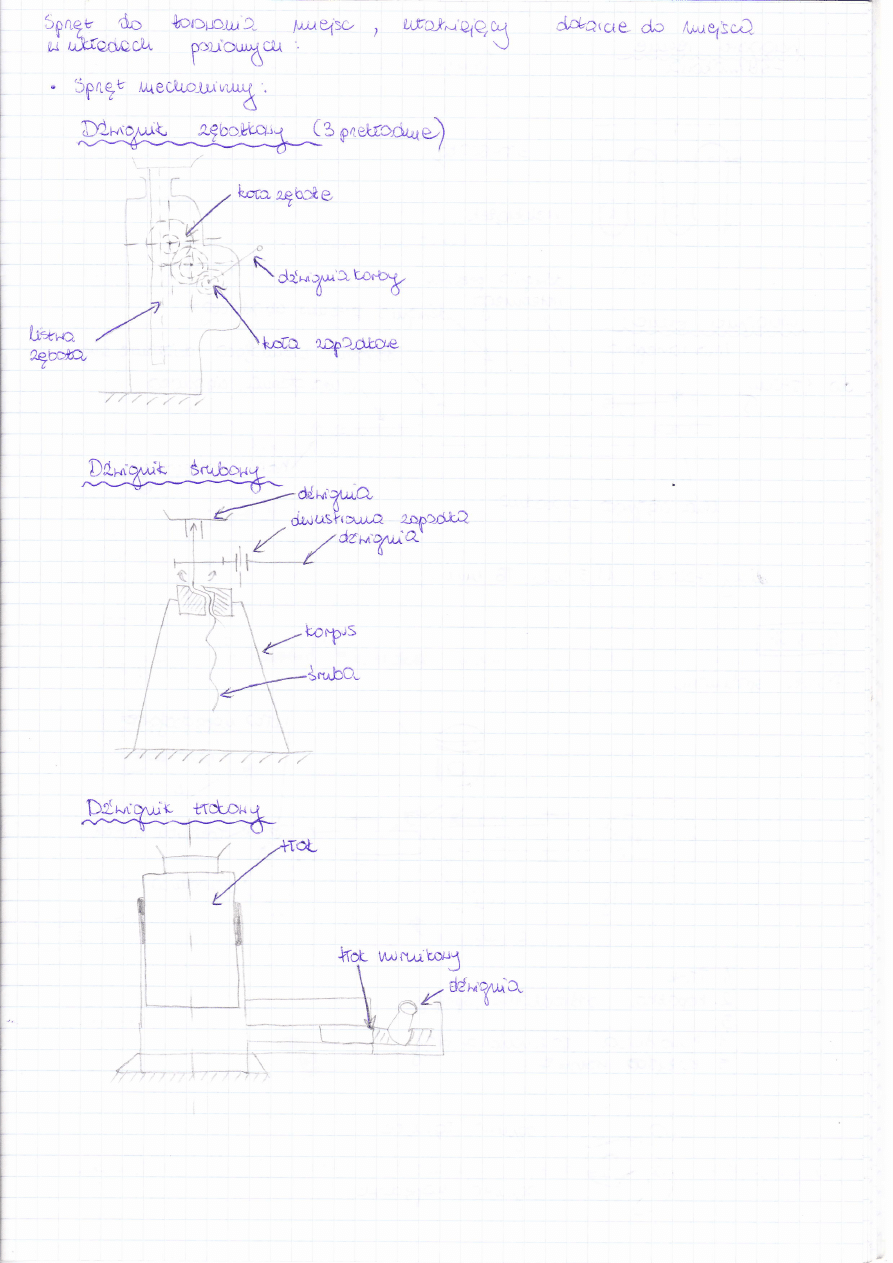 Sprzęt do torowania miejsc, ułatwiający dotarcie do miejsca
w układach poziomych:
• Sprzęt mechaniczny:
Dźwignik zębatkowy (3 przekładnie)
koła zębate
dźwignia korby
listwa
zębata
koła zapadkowe
Dźwignik śrubowy
dźwignia
dwustronna zapadka
dźwignia
korpus
śruba
Dźwignik tłokowy
tłok
tłok nurnikowy
dźwignia